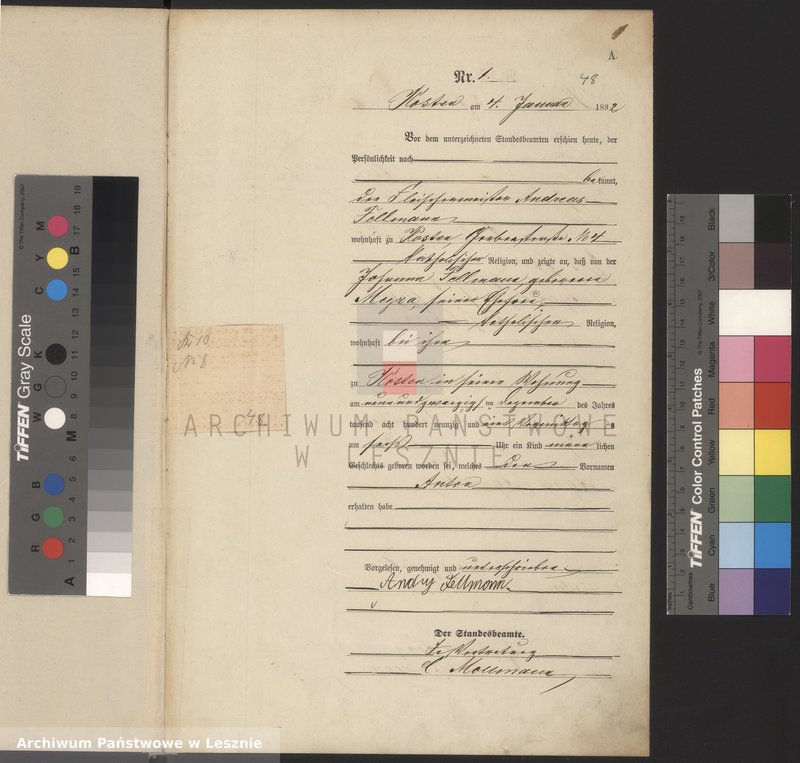 A.
Nr. 1.
48
Kosten am 4. Januar 1892
Vor dem unterzeichneten Standesbeamten erschien heute, der
Persönlichkeit nach
bekannt,
der Fleischermeister Andreas
wohnhaft zu Kosten, № 4
katholischer Religion, und zeigte an, daß von der
Johanna geborenen
seiner Ehefrau,
katholischer Religion,
wohnhaft bei ihm
zu Kosten in seiner Wohnung
am neunundzwanzigsten Dezember des Jahres
tausend acht hundert neunzig und eins Vormittags
um Uhr ein Kind männlichen
Geschlechts geboren worden sei, welches den Vornamen
Anton
erhalten habe
Vorgelesen, genehmigt und unterschrieben
Der Standesbeamte.
In Vertretung
C. Mollmann
№ 10
№ 8
48
ARCHIWUM PAŃSTWOWE
W LESZNIE
Archiwum Państwowe w Lesznie
TIFFEN Gray Scale
© The Tiffen Company, 2007
R G B W G K C Y M
A 1 2 3 4 5 6 M 8 9 10 11 12 13 14 15 B 17 18 19
TIFFEN Color Control Patches
© The Tiffen Company, 2007
Centimetres
Blue Cyan Green Yellow Red Magenta White 3/Color Black